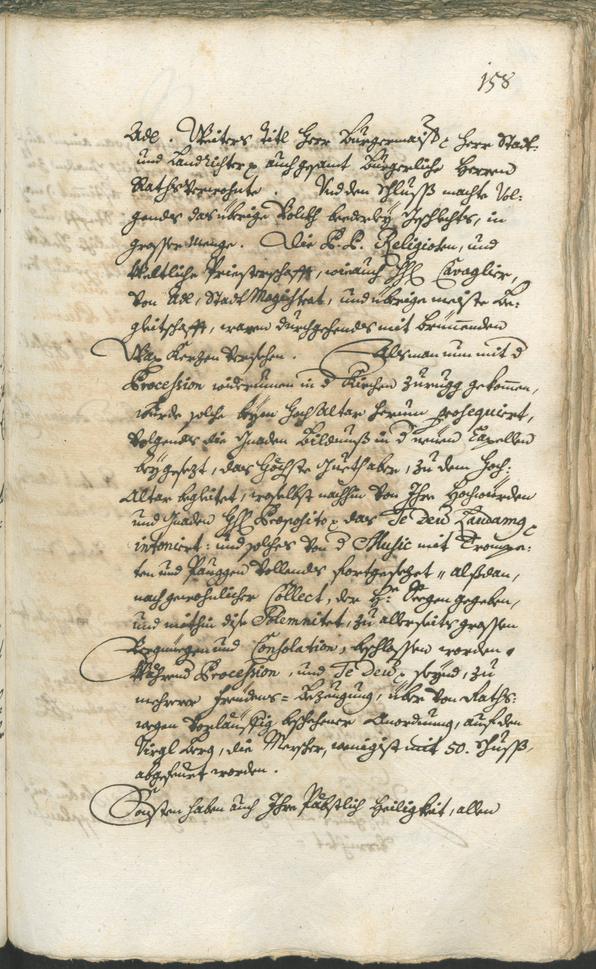 158
Adl. Weiters titl Herr Burgermaistr Herr Statt:
und Landrichter auch gesamt Burgerliche Herren
Raths Verwohnte. Und den Schluss machte Vol:
gendes das übrige Volkh beederley Geschlechts, in
grosser Menge. Die P. P. Religiosen, und
Weltliche Priesterschafft, wie auch Cavaglier,
von Adl, Statt Magistrat, und übrige maiste Be:
gleitschafft, waren durchgehendes mit brünnenden
Wax Kerzen Versehen. Als man nun mit d
Procession widerumen in d Kirchen zurugg gekommen,
wurde solche beym Hoch Altar herumb prosequirt,
volgends die Gnaden Bildnuss in d neuen Capellen
beygesezt, das Höchste Gueth aber, zu dem Hoch:
Altar begleitet, woselbst nachhin von Ihro Hochwürden
und Gnaden H Praeposito das Te Deu Laudamq
intonirt: und solches von d Music mit Trompe:
ten und Pauggen Vollendes fortgesezet, alssdan,
nach gewohnlicher Collect, der H: Seegen gegeben,
und mithin dise Solemnitet, zu allerseits grossen
Vergnüegen und Consolation, beschlossen worden.
Während Procession, und Te Deu, seynd, zu
mehrerer freudens= Bezeugung, über von Raths:
wegen vorläuffig beschehener Anordnung, auf den
Virgl Berg, die Mersher, wenigist mit 50. Schuss,
abgefeuert worden.
Sonsten haben auch Ihro Päbstlich Heiligkeit, allen